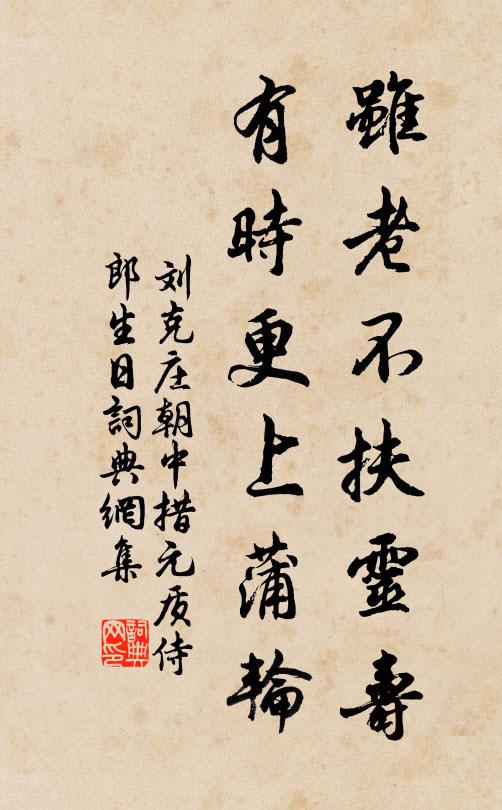 雖老不扶靈壽
有時更上蒲輪
刘克庄朝中措元质侍
郎生日詞典網集
詞典网印